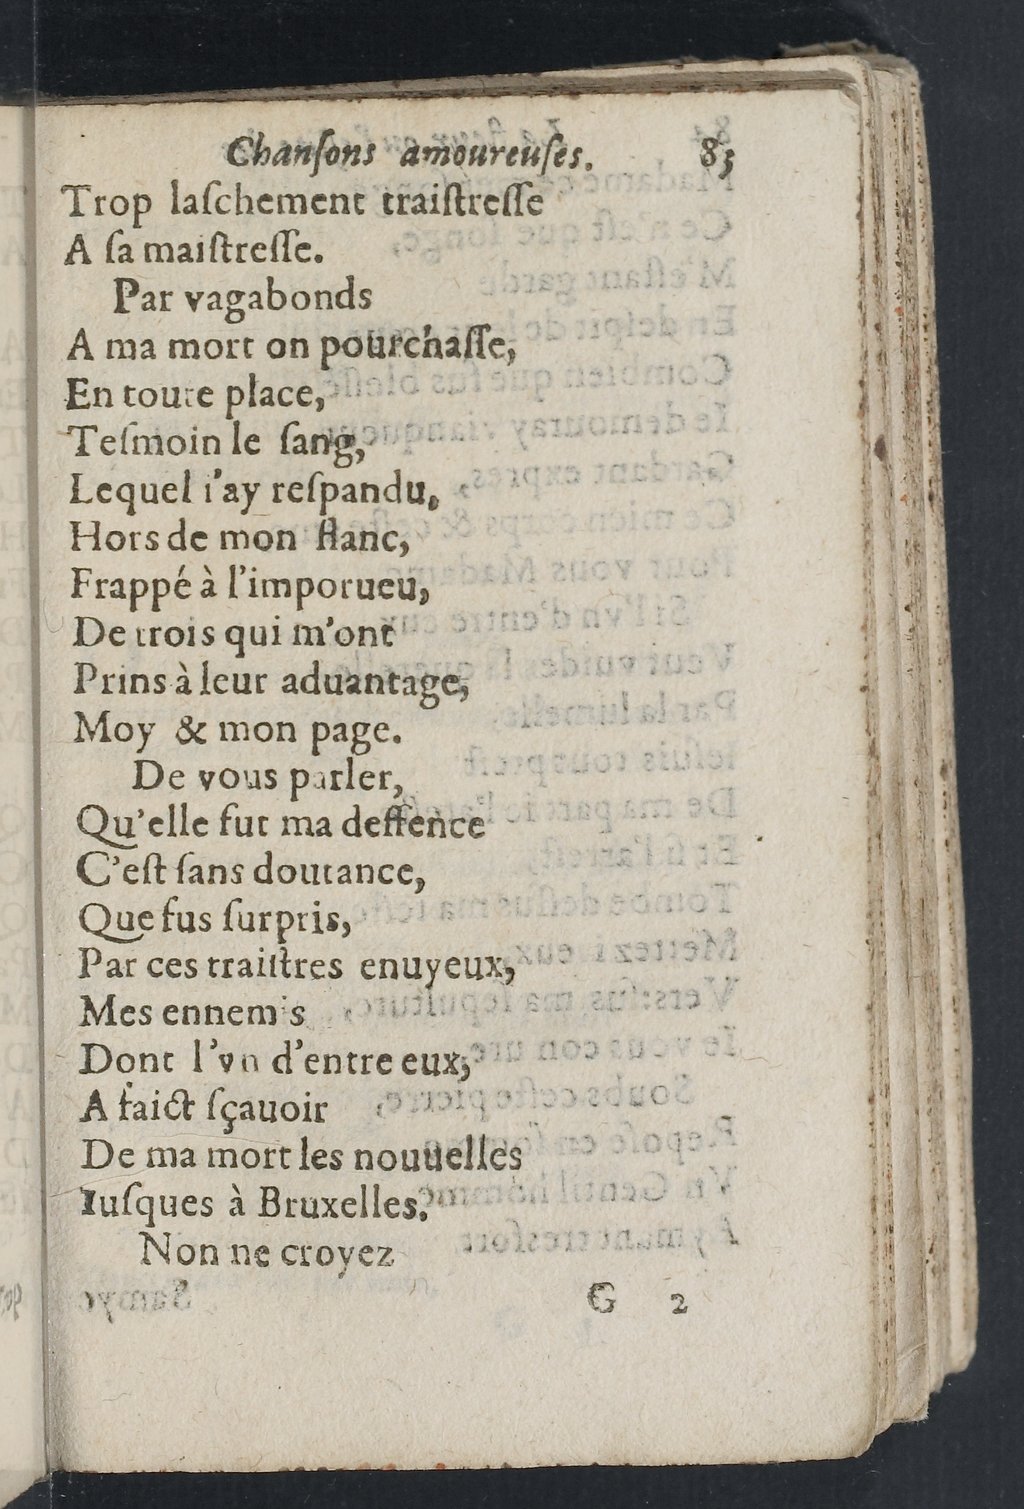 Chanſons amoureuſes. 83
Trop laſchement traiſtreſſe
A ſa maiſtreſſe.
Par vagabonds
A ma mort on pourchaſſe,
En toute place,
Teſmoin le ſang,
Lequel i'ay reſpandu,
Hors de mon flanc,
Frappé à l'imporueu,
De trois qui m'ont
Prins à leur aduantage,
Moy & mon page.
De vous parler,
Qu'elle fut ma deffence
C'eſt ſans doutance,
Que fus ſurpris,
Par ces traiſtres enuyeux,
Mes ennemis
Dont l'vn d'entre eux,
A faict ſçauoir
De ma mort les nouuelles
Iuſques à Bruxelles.
Non ne croyez
G 2